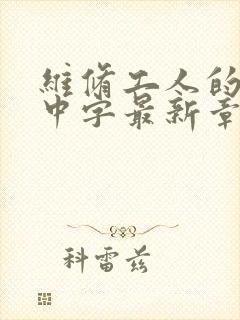 維脩工人的
中字最新章
科雷茲